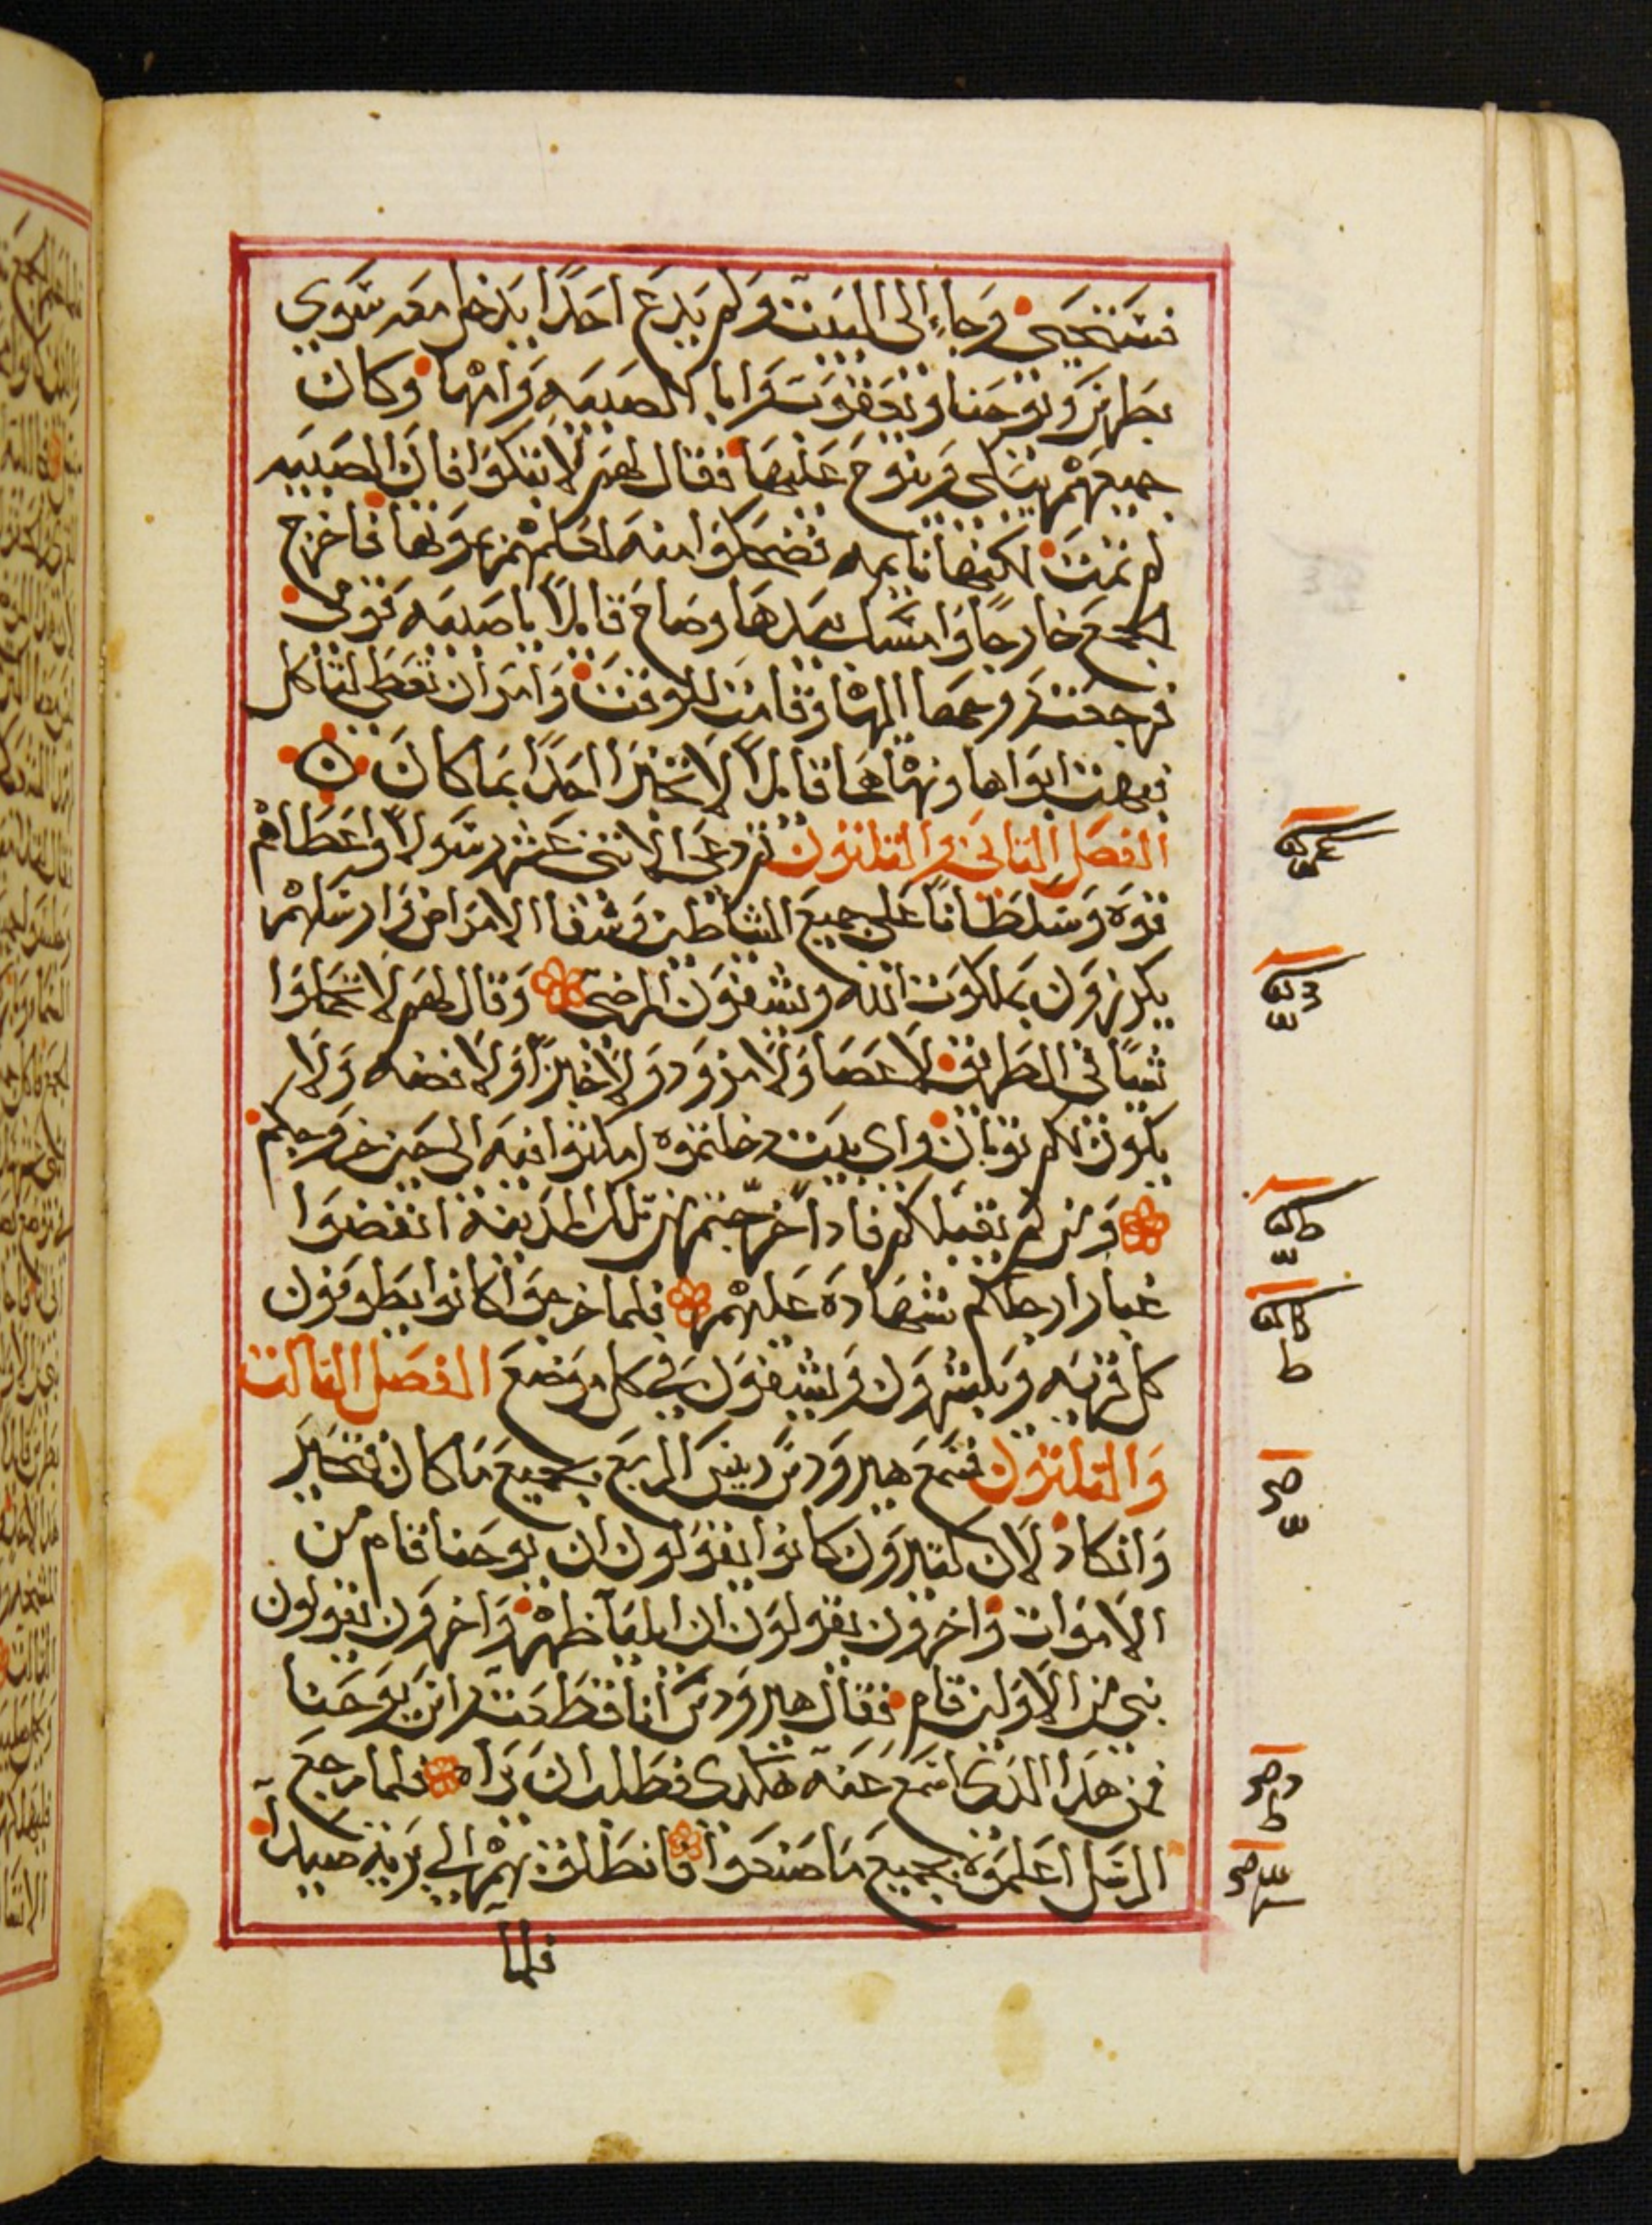 فستحيى وجاء الى البيت ولم يدع احدًا يدخل معه سوى
بطرس ويوحنا ويعقوب وابا الصبيه وامها وكان
جميعهم يبكى وينوح عليها فقال لهم لا تبكوا فان الصبيه
لم تمت لكنها نايمه فضحكوا منه لعلمهم بموتها فاخرج
الجمع خارجًا وامسك بيدها وصاح قايلاً يا صبيه قومى
فرجعت روحها اليها وقامت للوقت وامر ان تعطى لتاكل
فبهت ابواها ونهاهما قايلاً لا تخبرا احدًا بما كان
الفصل التانى والتلتون تم دعى الاتنى عشر رسولاً واعطاهم
قوه وسلطانًا على جميع الشاطين وشفا الامراض وارسلهم
يكرزون بملكوت الله ويشفون المرضى وقال لهم لا تحملوا
شيًا فى الطريق لا عصا ولا مزود ولا خبزًا ولا فضه ولا
يكون لكم توبان واى بيت دخلتموه امكتوا فيه الى حين خروجكم
ومن لم يقبلكم فاداخرجتم من تلك المدينة انفضوا
غبار ارجلكم شهاده عليهم فلما خرجوا كانوا يطوفون
كل قريه ويبشرون ويشفون فى كل موضع الفصل التالت
والتلتون فسمع هيرودس رييس الربع بجميع ما كان فتحير
وانكاد لان كتيرون كانوا يقولون ان يوحنا قام من
الاموات واخرون يقولون ان ايليا ظهر واخرون يقولون
نبى من الاولين قام فقال هيرودس انا قطعت راس يوحنا
فمن هدا الدى اسمع عنه هكدى فطلب ان يراه فلما رجع
الرسل اعلموه بجميع ما صنعوا فانطلق بهم الى برية صيدا
فلما